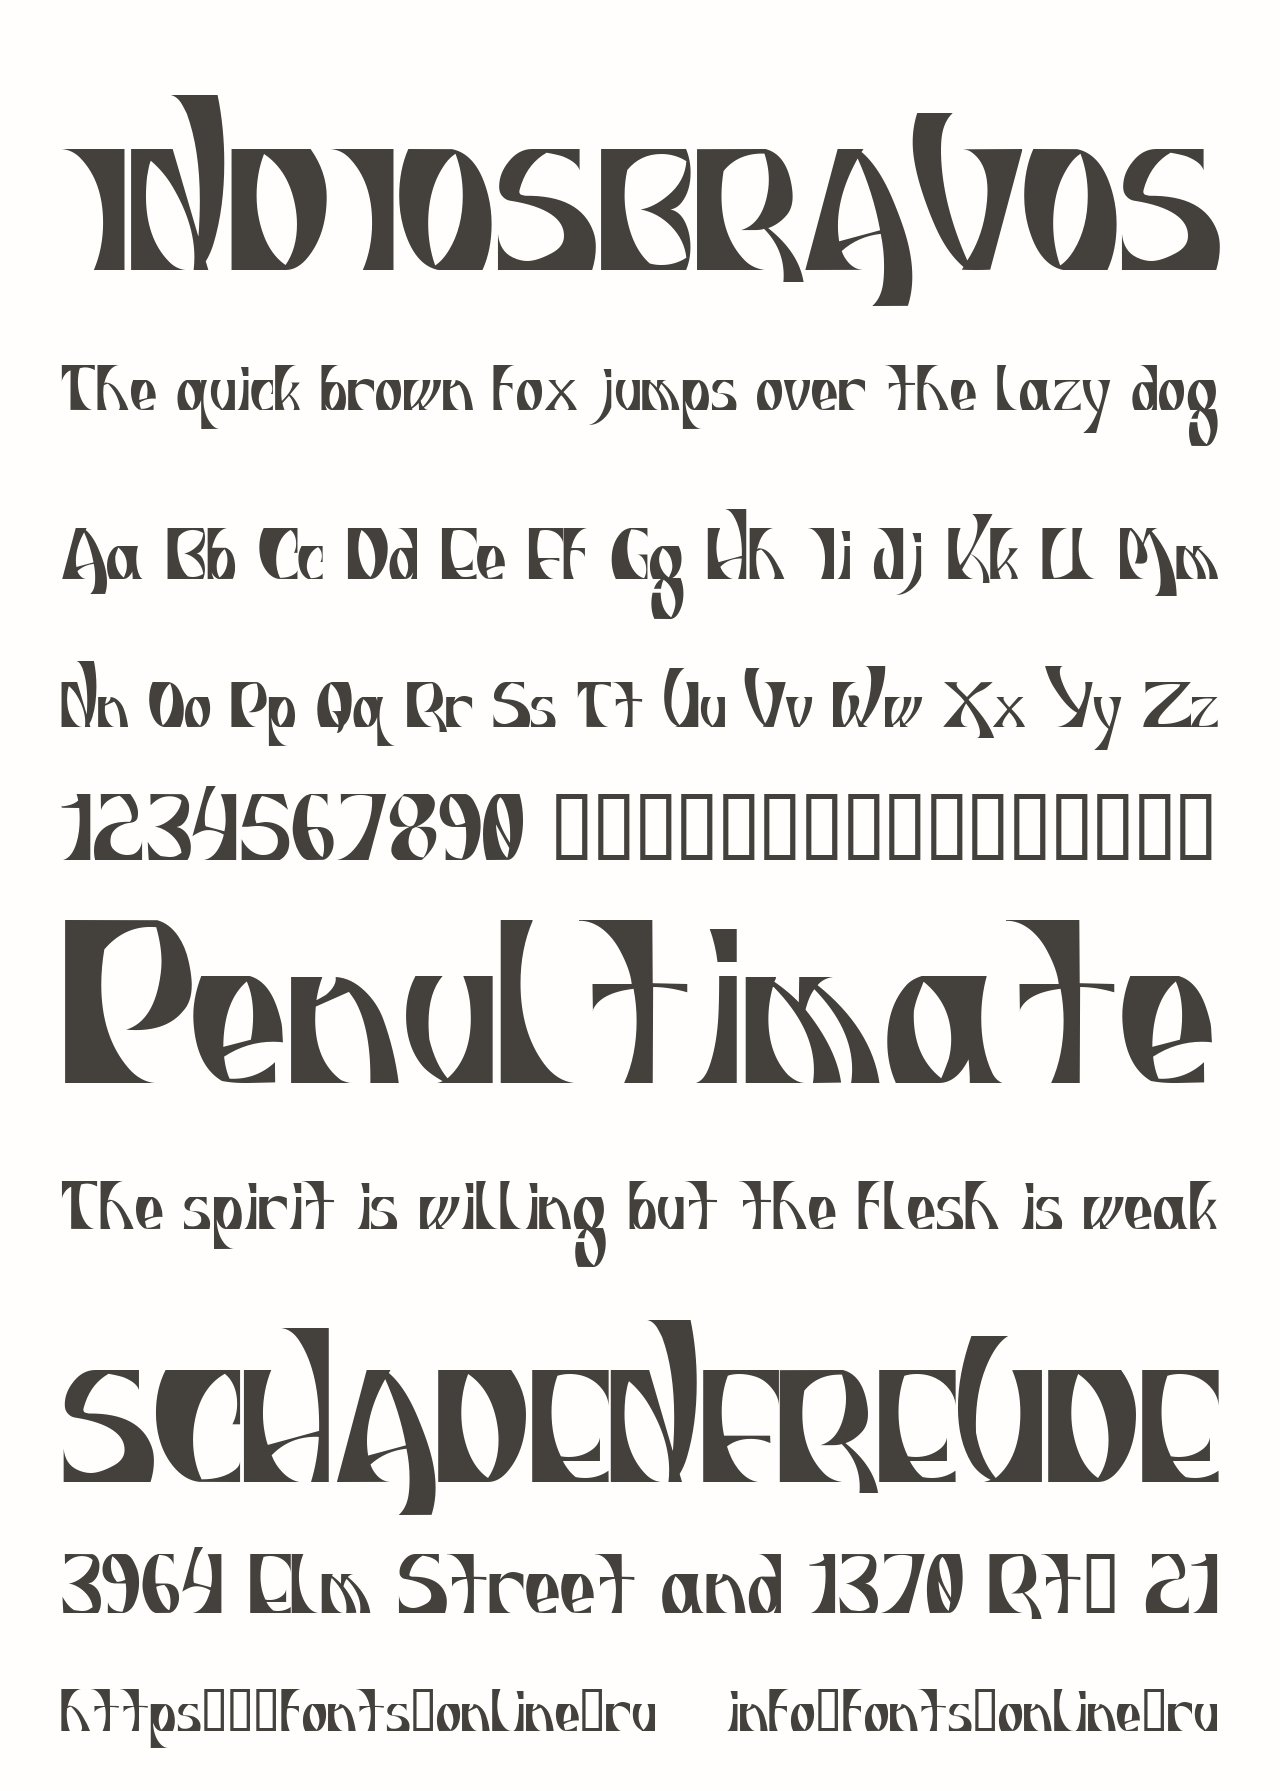 INDIOSBRAVOS
The quick brown fox jumps over the lazy dog
Aa Bb Cc Dd Ee Ff Gg Hh Ii Jj Kk Ll Mm
Nn Oo Pp Qq Rr Ss Tt Uu Vv Ww Xx Yy Zz
1234567890 □□□□□□□□□□□□□□□□
Penultimate
The spirit is willing but the flesh is weak
SCHADENFREUDE
3964 Elm Street and 1370 Rt□ 21
https□□□fonts□online□ru info□fonts□online□ru